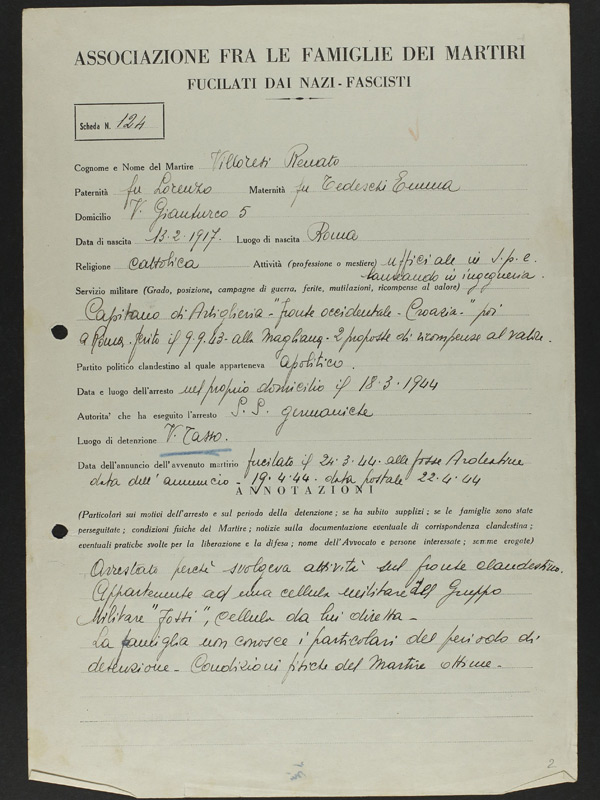 ASSOCIAZIONE FRA LE FAMIGLIE DEI MARTIRI
FUCILATI DAI NAZI-FASCISTI
Scheda N. 124
Cognome e Nome del Martire Villoresi Renato
Paternità fu Lorenzo Maternità fu Tedeschi Emma
Domicilio V. Gianturco 5
Data di nascita 13.2.1917. Luogo di nascita Roma
Religione cattolica Attività (professione o mestiere) ufficiale in s.p.e.
laureando in ingegneria.
Servizio militare (Grado, posizione, campagne di guerra, ferite, mutilazioni, ricompense al valore)
Capitano di Artiglieria - "fronte occidentale - Croazia -" poi
a Roma. ferito il 9.9.43 - alla Magliana - 2 proposte di ricompense al valore.
Partito politico clandestino al quale apparteneva apolitico.
Data e luogo dell'arresto nel proprio domicilio il 18.3.1944
Autorita' che ha eseguito l'arresto S.S. germaniche
Luogo di detenzione V. Tasso.
Data dell'annuncio dell'avvenuto martirio fucilato il 24.3.44. alle fosse Ardeatine
data dell'annuncio - 19.4.44. data postale 22.4.44
ANNOTAZIONI
(Particolari sui motivi dell'arresto e sul periodo della detenzione; se ha subito supplizi; se le famiglie sono state
perseguitate; condizioni fisiche del Martire; notizie sulla documentazione eventuale di corrispondenza clandestina;
eventuali pratiche svolte per la liberazione e la difesa; nome dell'Avvocato e persone interessate; somme erogate)
Arrestato perchè svolgeva attività sul fronte clandestino.
Appartenente ad una cellula militare del Gruppo
Militare "Fossi", cellula da lui diretta -
La famiglia non conosce i particolari del periodo di
detenzione - Condizioni fisiche del Martire ottime -
2.